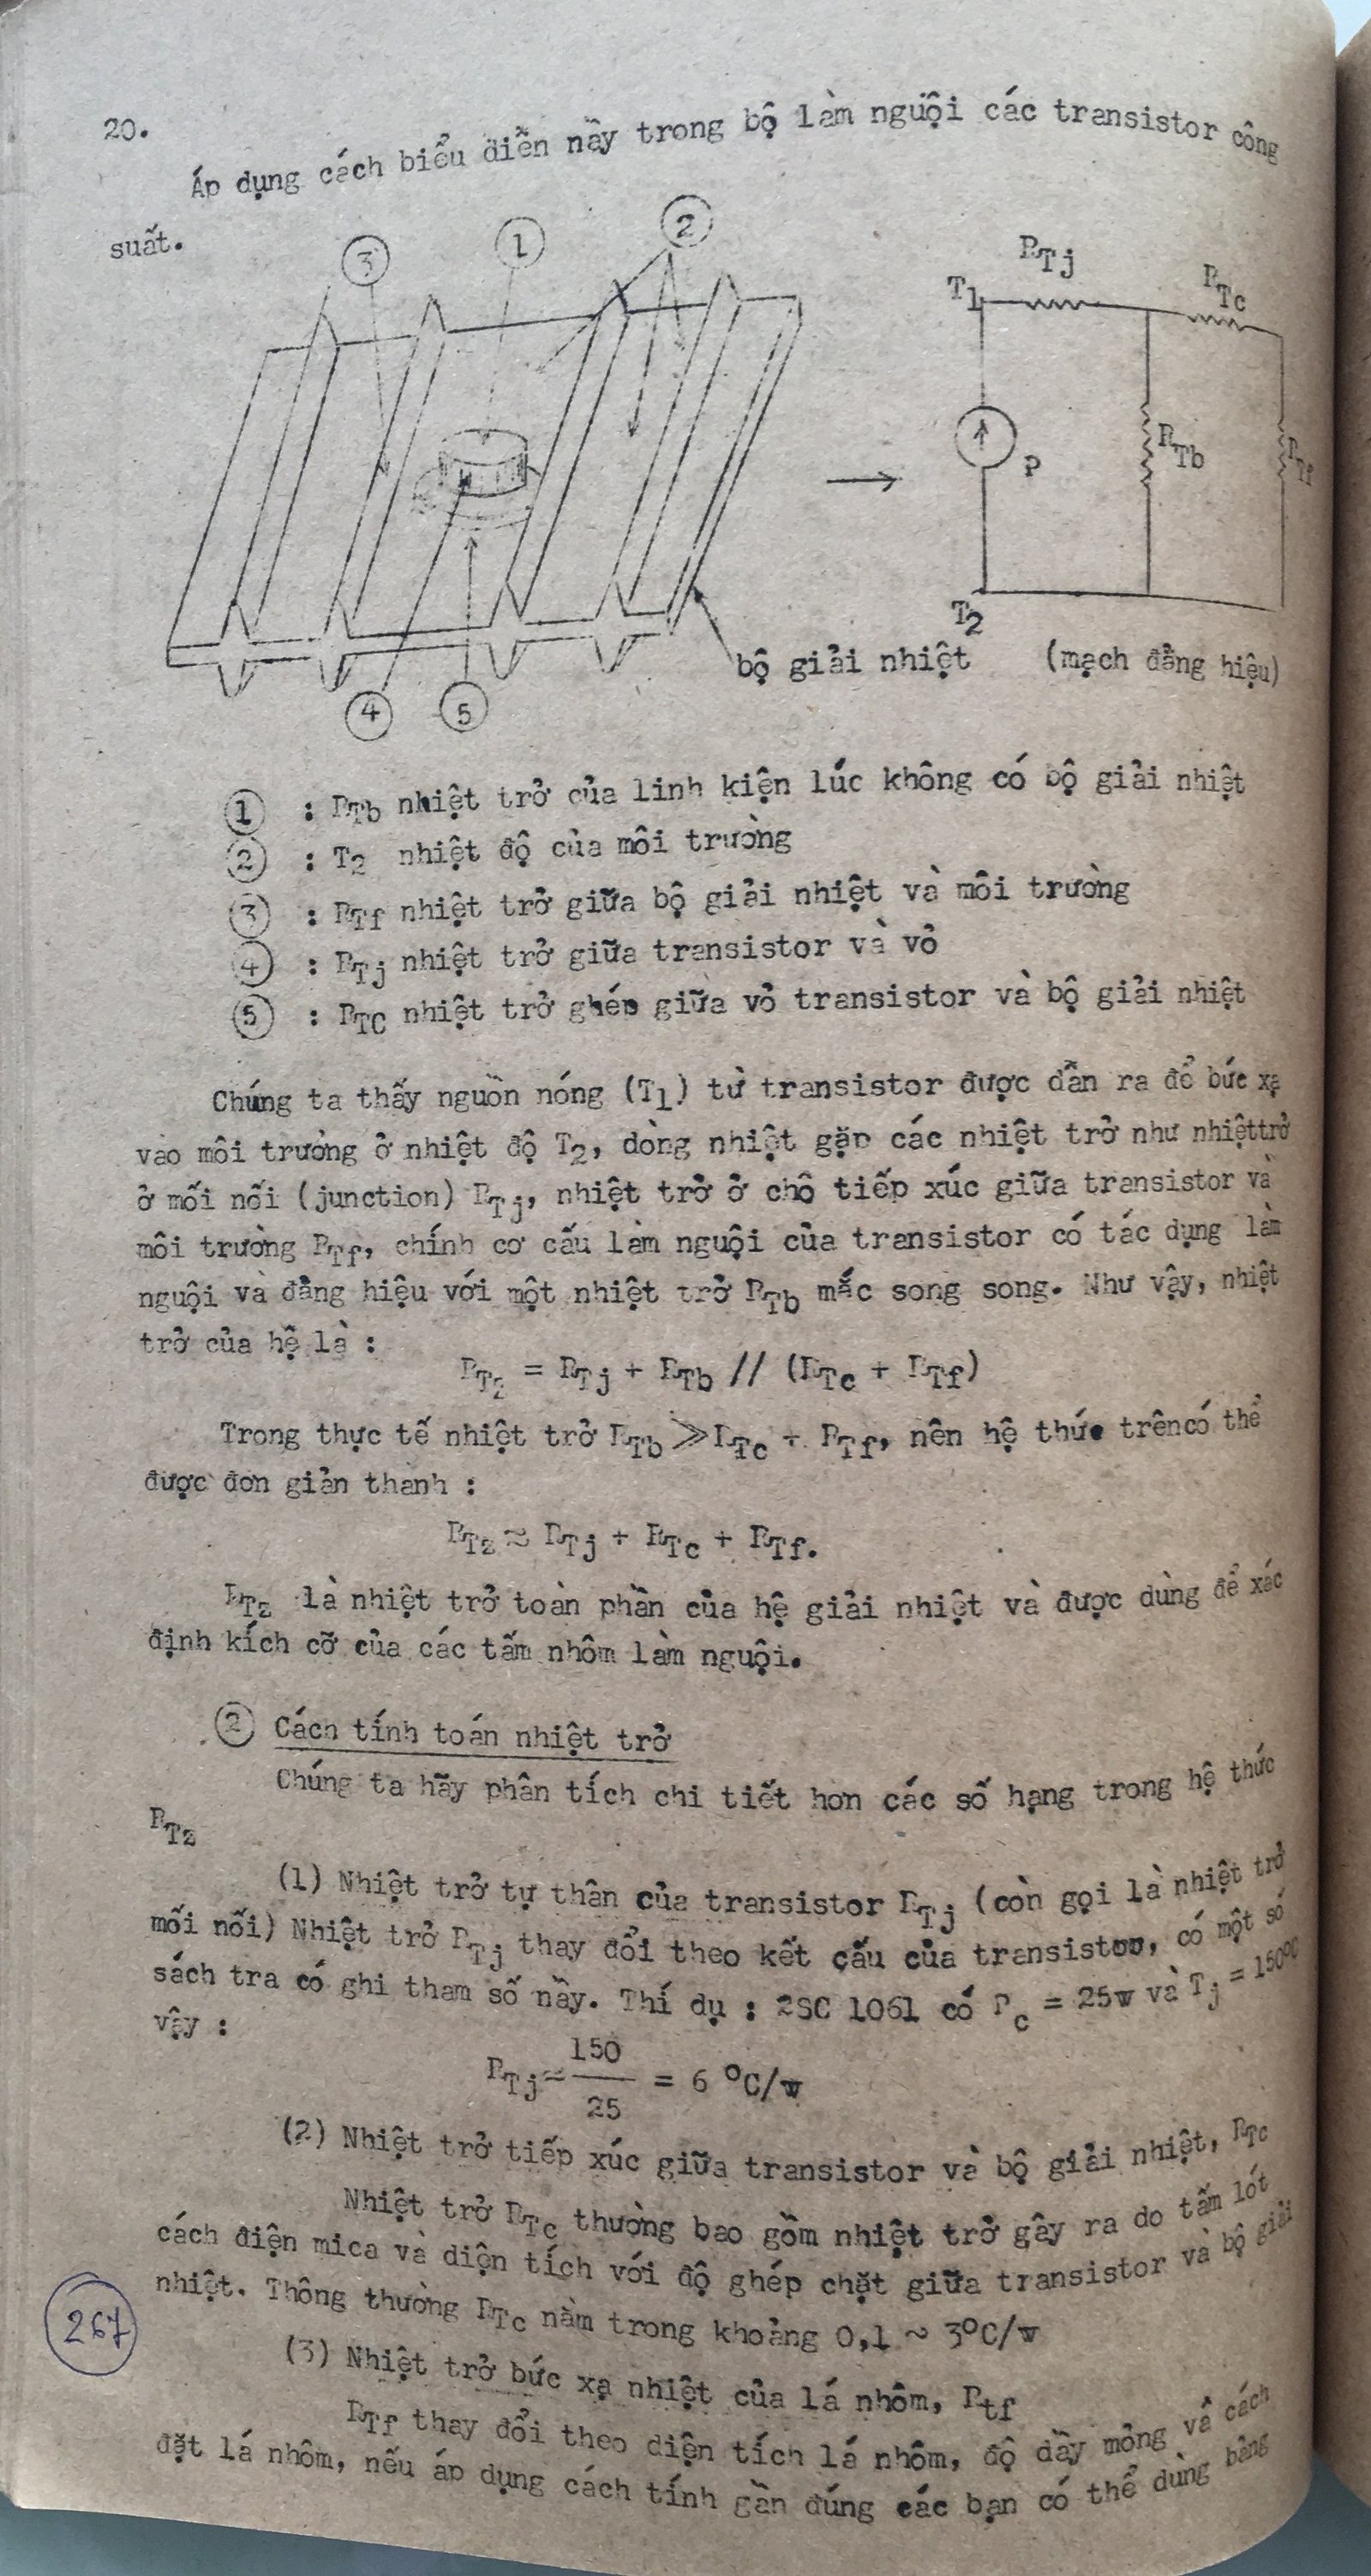 20.
Áp dụng cách biểu diễn nầy trong bộ làm nguội các transistor công
suất.
3
1
2
RTj
T1
RTc
P
RTb
RTf
T2
bộ giải nhiệt (mạch đẳng hiệu)
4
5
1 : RTb nhiệt trở của linh kiện lúc không có bộ giải nhiệt
2 : T2 nhiệt độ của môi trường
3 : RTf nhiệt trở giữa bộ giải nhiệt và môi trường
4 : RTj nhiệt trở giữa transistor và vỏ
5 : RTC nhiệt trở ghép giữa vỏ transistor và bộ giải nhiệt
Chúng ta thấy nguồn nóng (T1) từ transistor được dẫn ra để bức xạ
vào môi trường ở nhiệt độ T2, dòng nhiệt gặp các nhiệt trở như nhiệttrở
ở mối nối (junction) RTj, nhiệt trở ở chỗ tiếp xúc giữa transistor và
môi trường RTf, chính cơ cấu làm nguội của transistor có tác dụng làm
nguội và đẳng hiệu với một nhiệt trở RTb mắc song song. Như vậy, nhiệt
trở của hệ là :
RTz = RTj + RTb // (RTc + RTf)
Trong thực tế nhiệt trở RTb ≫ RTc + RTf, nên hệ thức trêncó thể
được đơn giản thành :
RTz ≈ RTj + RTc + RTf.
RTz là nhiệt trở toàn phần của hệ giải nhiệt và được dùng để xác
định kích cỡ của các tấm nhôm làm nguội.
2 Cách tính toán nhiệt trở
Chúng ta hãy phân tích chi tiết hơn các số hạng trong hệ thức
RTz
(1) Nhiệt trở tự thân của transistor RTj (còn gọi là nhiệt trở
mối nối) Nhiệt trở RTj thay đổi theo kết cấu của transistor, có một số
sách tra có ghi tham số nầy. Thí dụ : 2SC 1061 có Pc = 25w và Tj = 150°C
vậy :
RTj = 150/25 = 6 °C/w
(2) Nhiệt trở tiếp xúc giữa transistor và bộ giải nhiệt, RTc
Nhiệt trở RTc thường bao gồm nhiệt trở gây ra do tấm lót
cách điện mica và diện tích với độ ghép chặt giữa transistor và bộ giải
nhiệt. Thông thường RTc nằm trong khoảng 0,1 ~ 3°C/w
267
(3) Nhiệt trở bức xạ nhiệt của lá nhôm, Rtf
RTf thay đổi theo diện tích lá nhôm, độ dầy mỏng về cách
đặt lá nhôm, nếu áp dụng cách tính gần đúng các bạn có thể dùng bảng